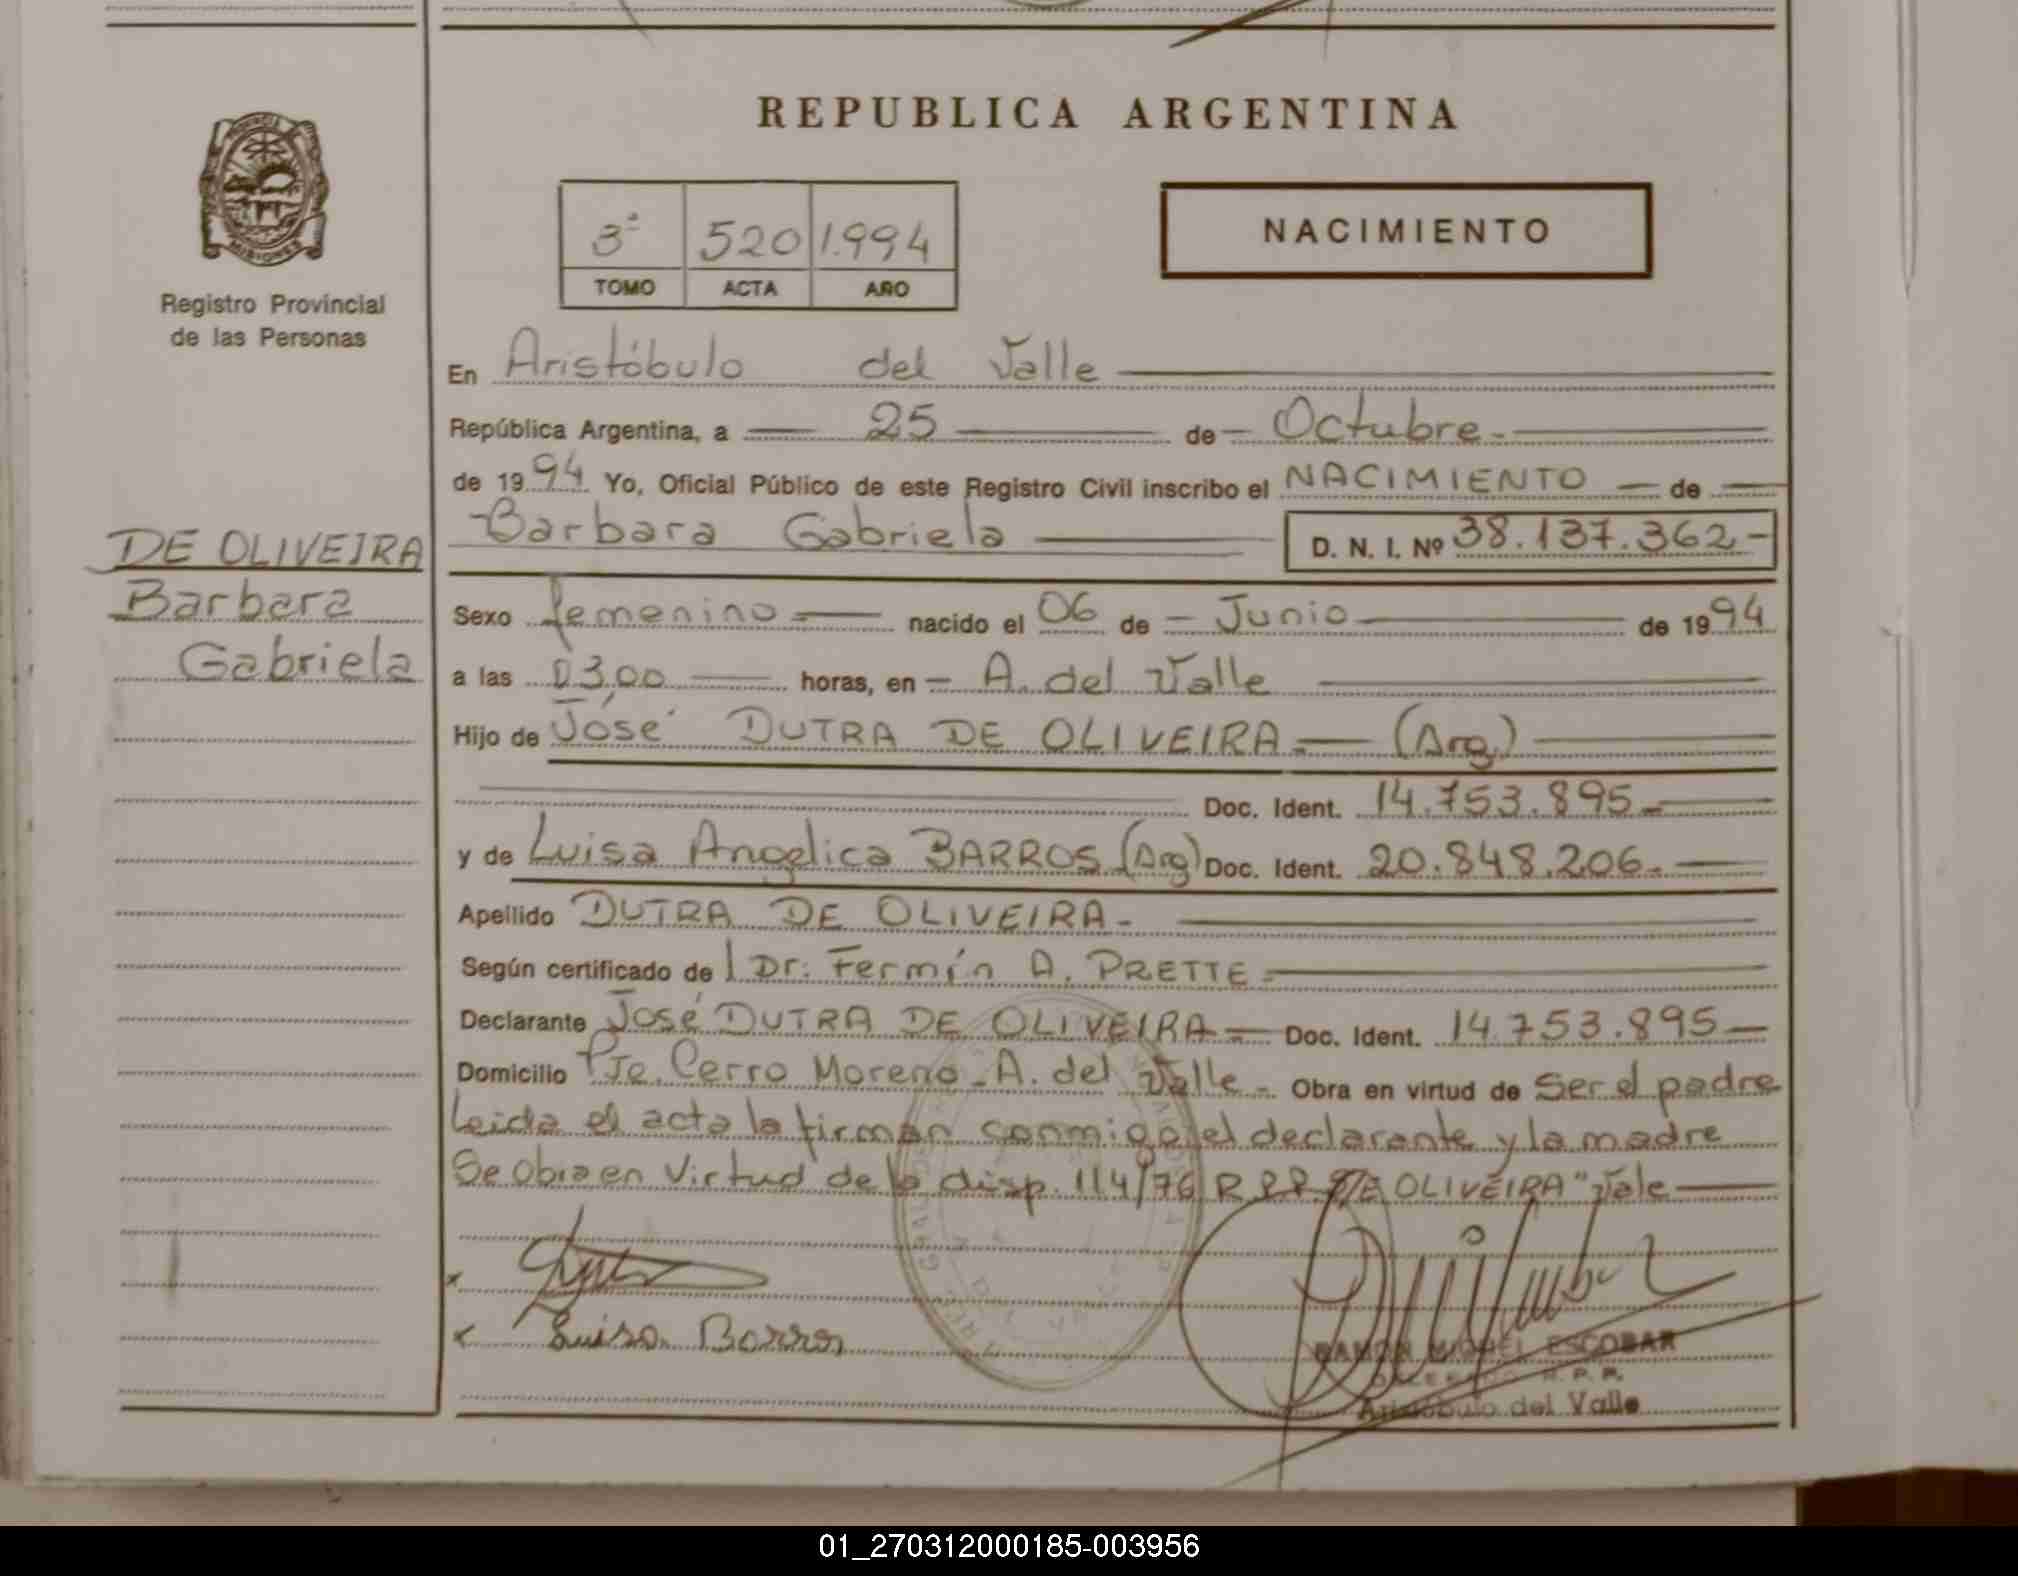 REPUBLICA ARGENTINA
PROVINCIA
MISIONES
Registro Provincial
de las Personas
3ª 520 1.994
TOMO ACTA AÑO
NACIMIENTO
DE OLIVEIRA
Barbara
Gabriela
En Aristóbulo del Valle
República Argentina, a 25 de Octubre.
de 1994 Yo, Oficial Público de este Registro Civil inscribo el NACIMIENTO de
Barbara Gabriela D. N. I. Nº 38.137.362-
Sexo femenino nacido el 06 de Junio de 1994
a las 03,00 horas, en A. del Valle
Hijo de José DUTRA DE OLIVEIRA.- (Arg.)
Doc. Ident. 14.753.895.-
y de Luisa Angelica BARROS (Arg) Doc. Ident. 20.848.206.-
Apellido DUTRA DE OLIVEIRA.-
Según certificado de l Dr: Fermín A. PRETTE.-
Declarante José DUTRA DE OLIVEIRA.- Doc. Ident. 14.753.895-
Domicilio Pje. Cerro Moreno-A. del Valle.- Obra en virtud de Ser el padre
Leida el acta la firman conmigo el declarante y la madre
Se obra en Virtud de la disp. 114/76 R.P.P. "DE OLIVEIRA" Vale
x
x Luisa Barros
RAMON MIGUEL ESCOBAR
DELEGADO R. P. P.
Aristóbulo del Valle
01_270312000185-003956